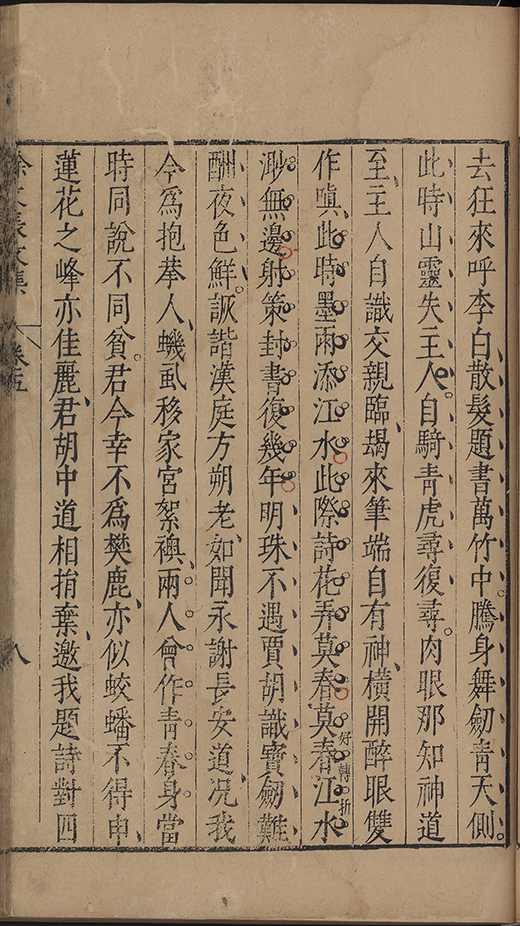 去狂來呼李白散髮題書萬竹中騰身舞劒青天側
此時山靈失主人自騎青虎尋復尋肉眼那知神道
至主人自識交親臨朅來筆端自有神橫開醉眼雙
作嗔此時墨雨添江水此際詩花弄莫春莫春江水
好轉折
渺無邊射策封書復幾年明珠不遇賈胡識寶劒難
酬夜色鮮詼諧漢庭方朔老如聞永謝長安道況我
今爲抱摹人蟣虱移家宮絮襖兩人曾作青春身當
時同說不同貧君今幸不爲樊鹿亦似蛟蟠不得申
蓮花之峰亦佳麗君胡中道相捐棄邀我題詩對四
徐文長文集 卷五 八